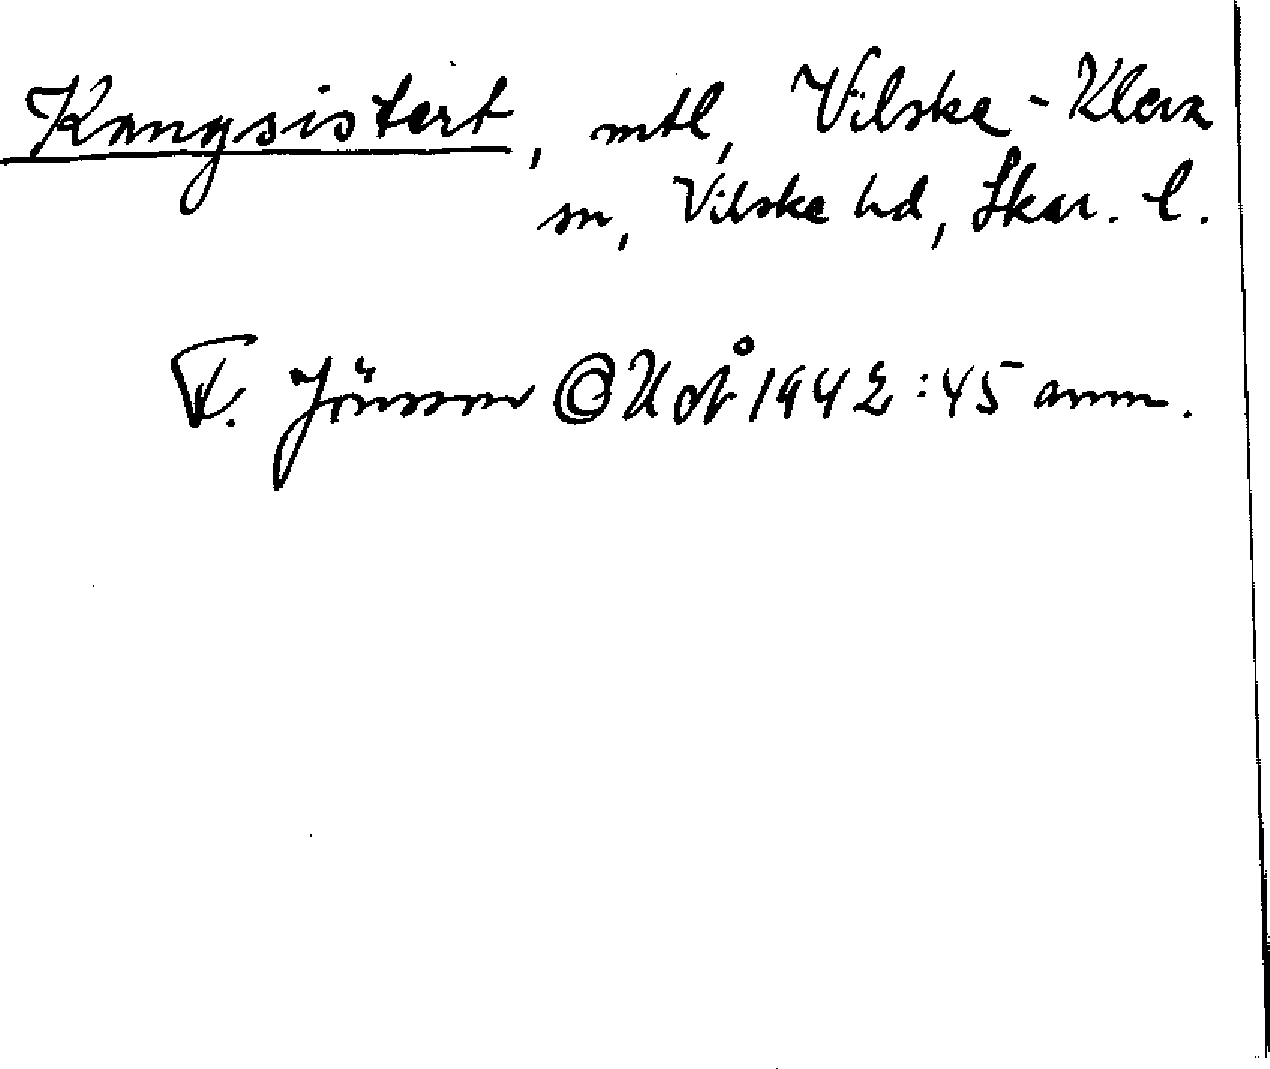 Kongsistert, mtl, Vilske-Kleva
sn, Vilske hd, Skar. l.
F. Jönsson © UOÅ 1942:45 anm.